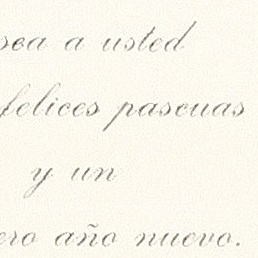 sea a usted
felices pascuas
y un
ero año nuevo.